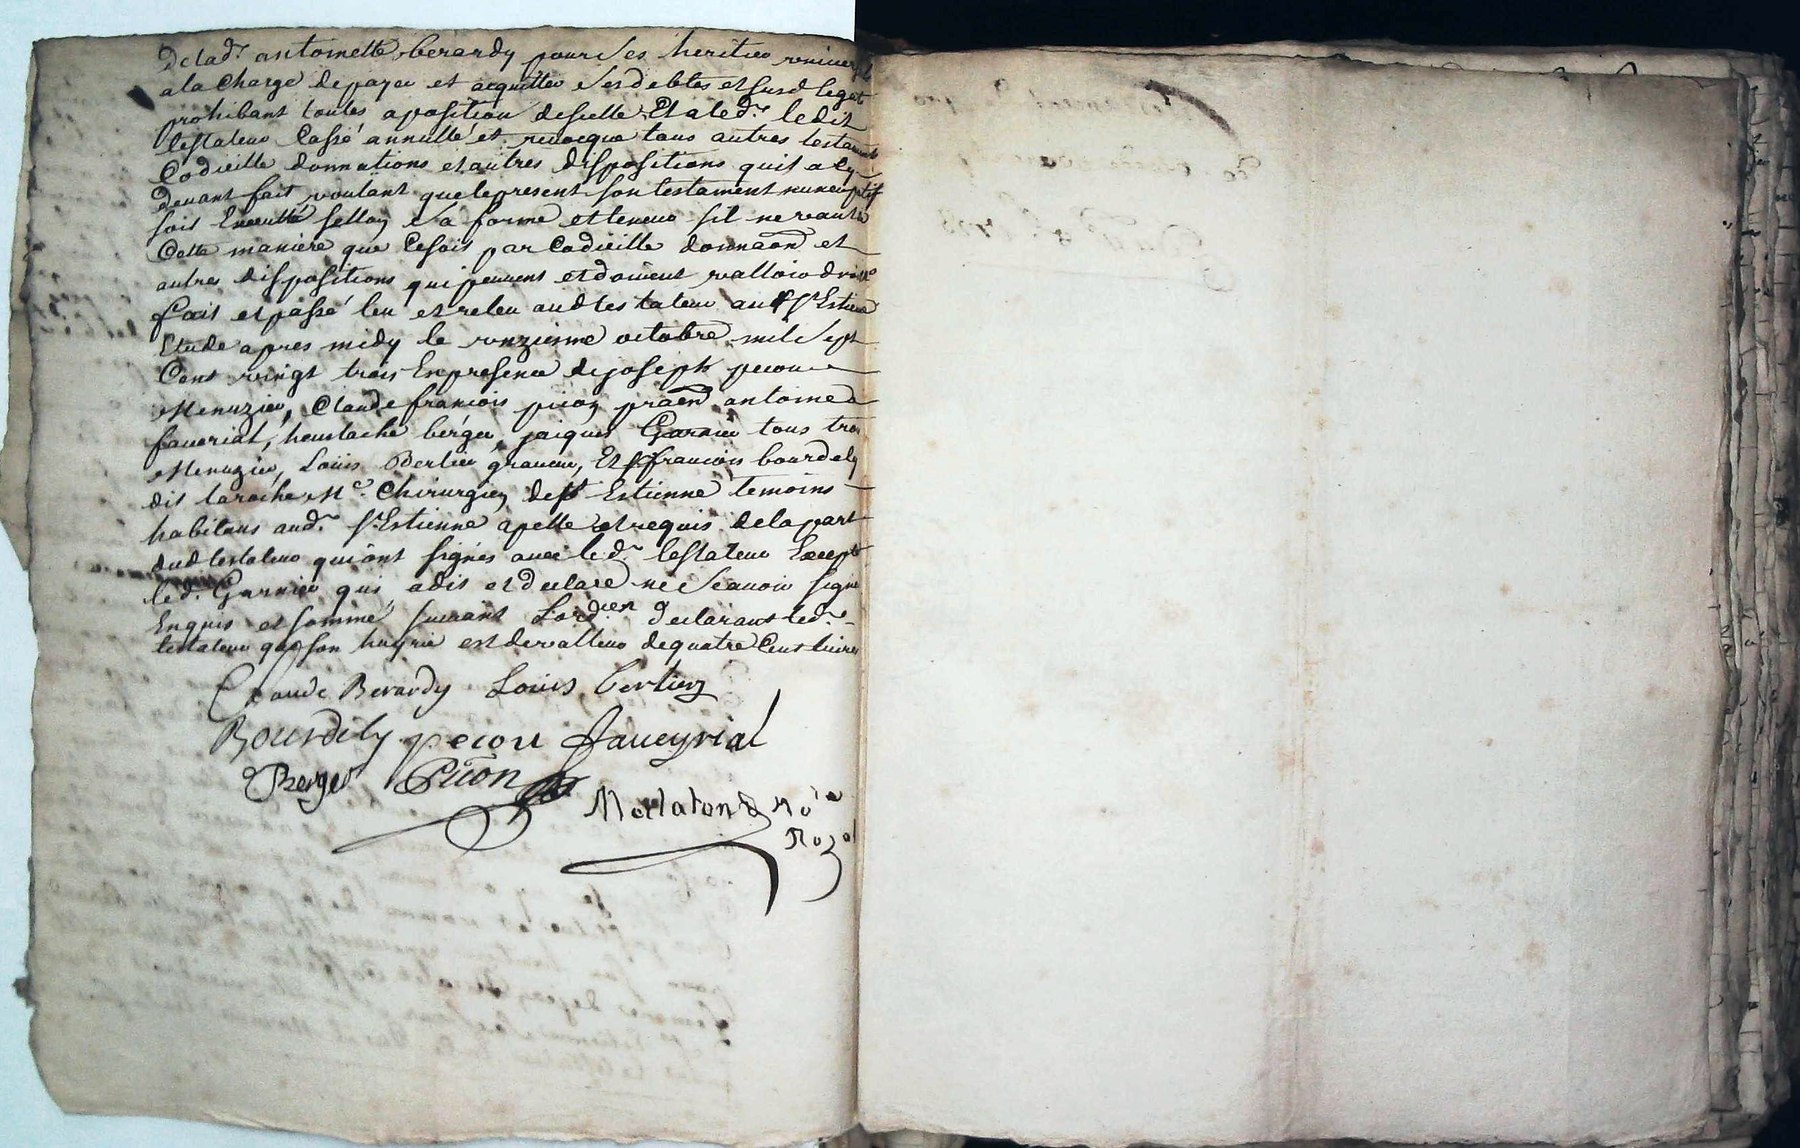 de lad.e antoinette berardy pour ses heritiers univers
a la charge de payer et acquitter ses debtes et susd legat
prohibant toutes aposition de scelle Et a led.t ledit
testateur Cassé annullé et revoque tous autres testaments
Codicille donnations et autres dispositions quil a cy
devant fait voulant que le present son testament nuncupatif
soit Executté sellon sa forme et teneur sil ne vaut de
Cette maniere que Ce soit par Codicille donnaon et
autres dispositions qui peuvent et doivent valloir de
fait et passé leu et releu aud testateur aud St Estienne
Etude apres midy le unzieme octobre mil sept
Cent vingt trois En presence de joseph pecou
Menuzier, Claude francois picon praen antoine
faveriat, heustache berger, jaques Garnier tous trois
Menuzier, Loüis Bertier graveur, Et francois bourdely
dit laroche Me. Chirurgien de St Estienne temoins
habitans aud.t St Estienne apelle et requis de la part
dud testateur qui ont signés avec led.t testateur Excepté
led. Garnier qui a dit et declaré ne scavoir signé
Enquis et sommé suivant Lord.ien declarant led.t
testateur que son huyrie est de valleur de quatre Cens livres
Claude Berardy Louis bertier
Bourdely pecou faveyrial
Berger Picon
Merlaton no.re
Royal